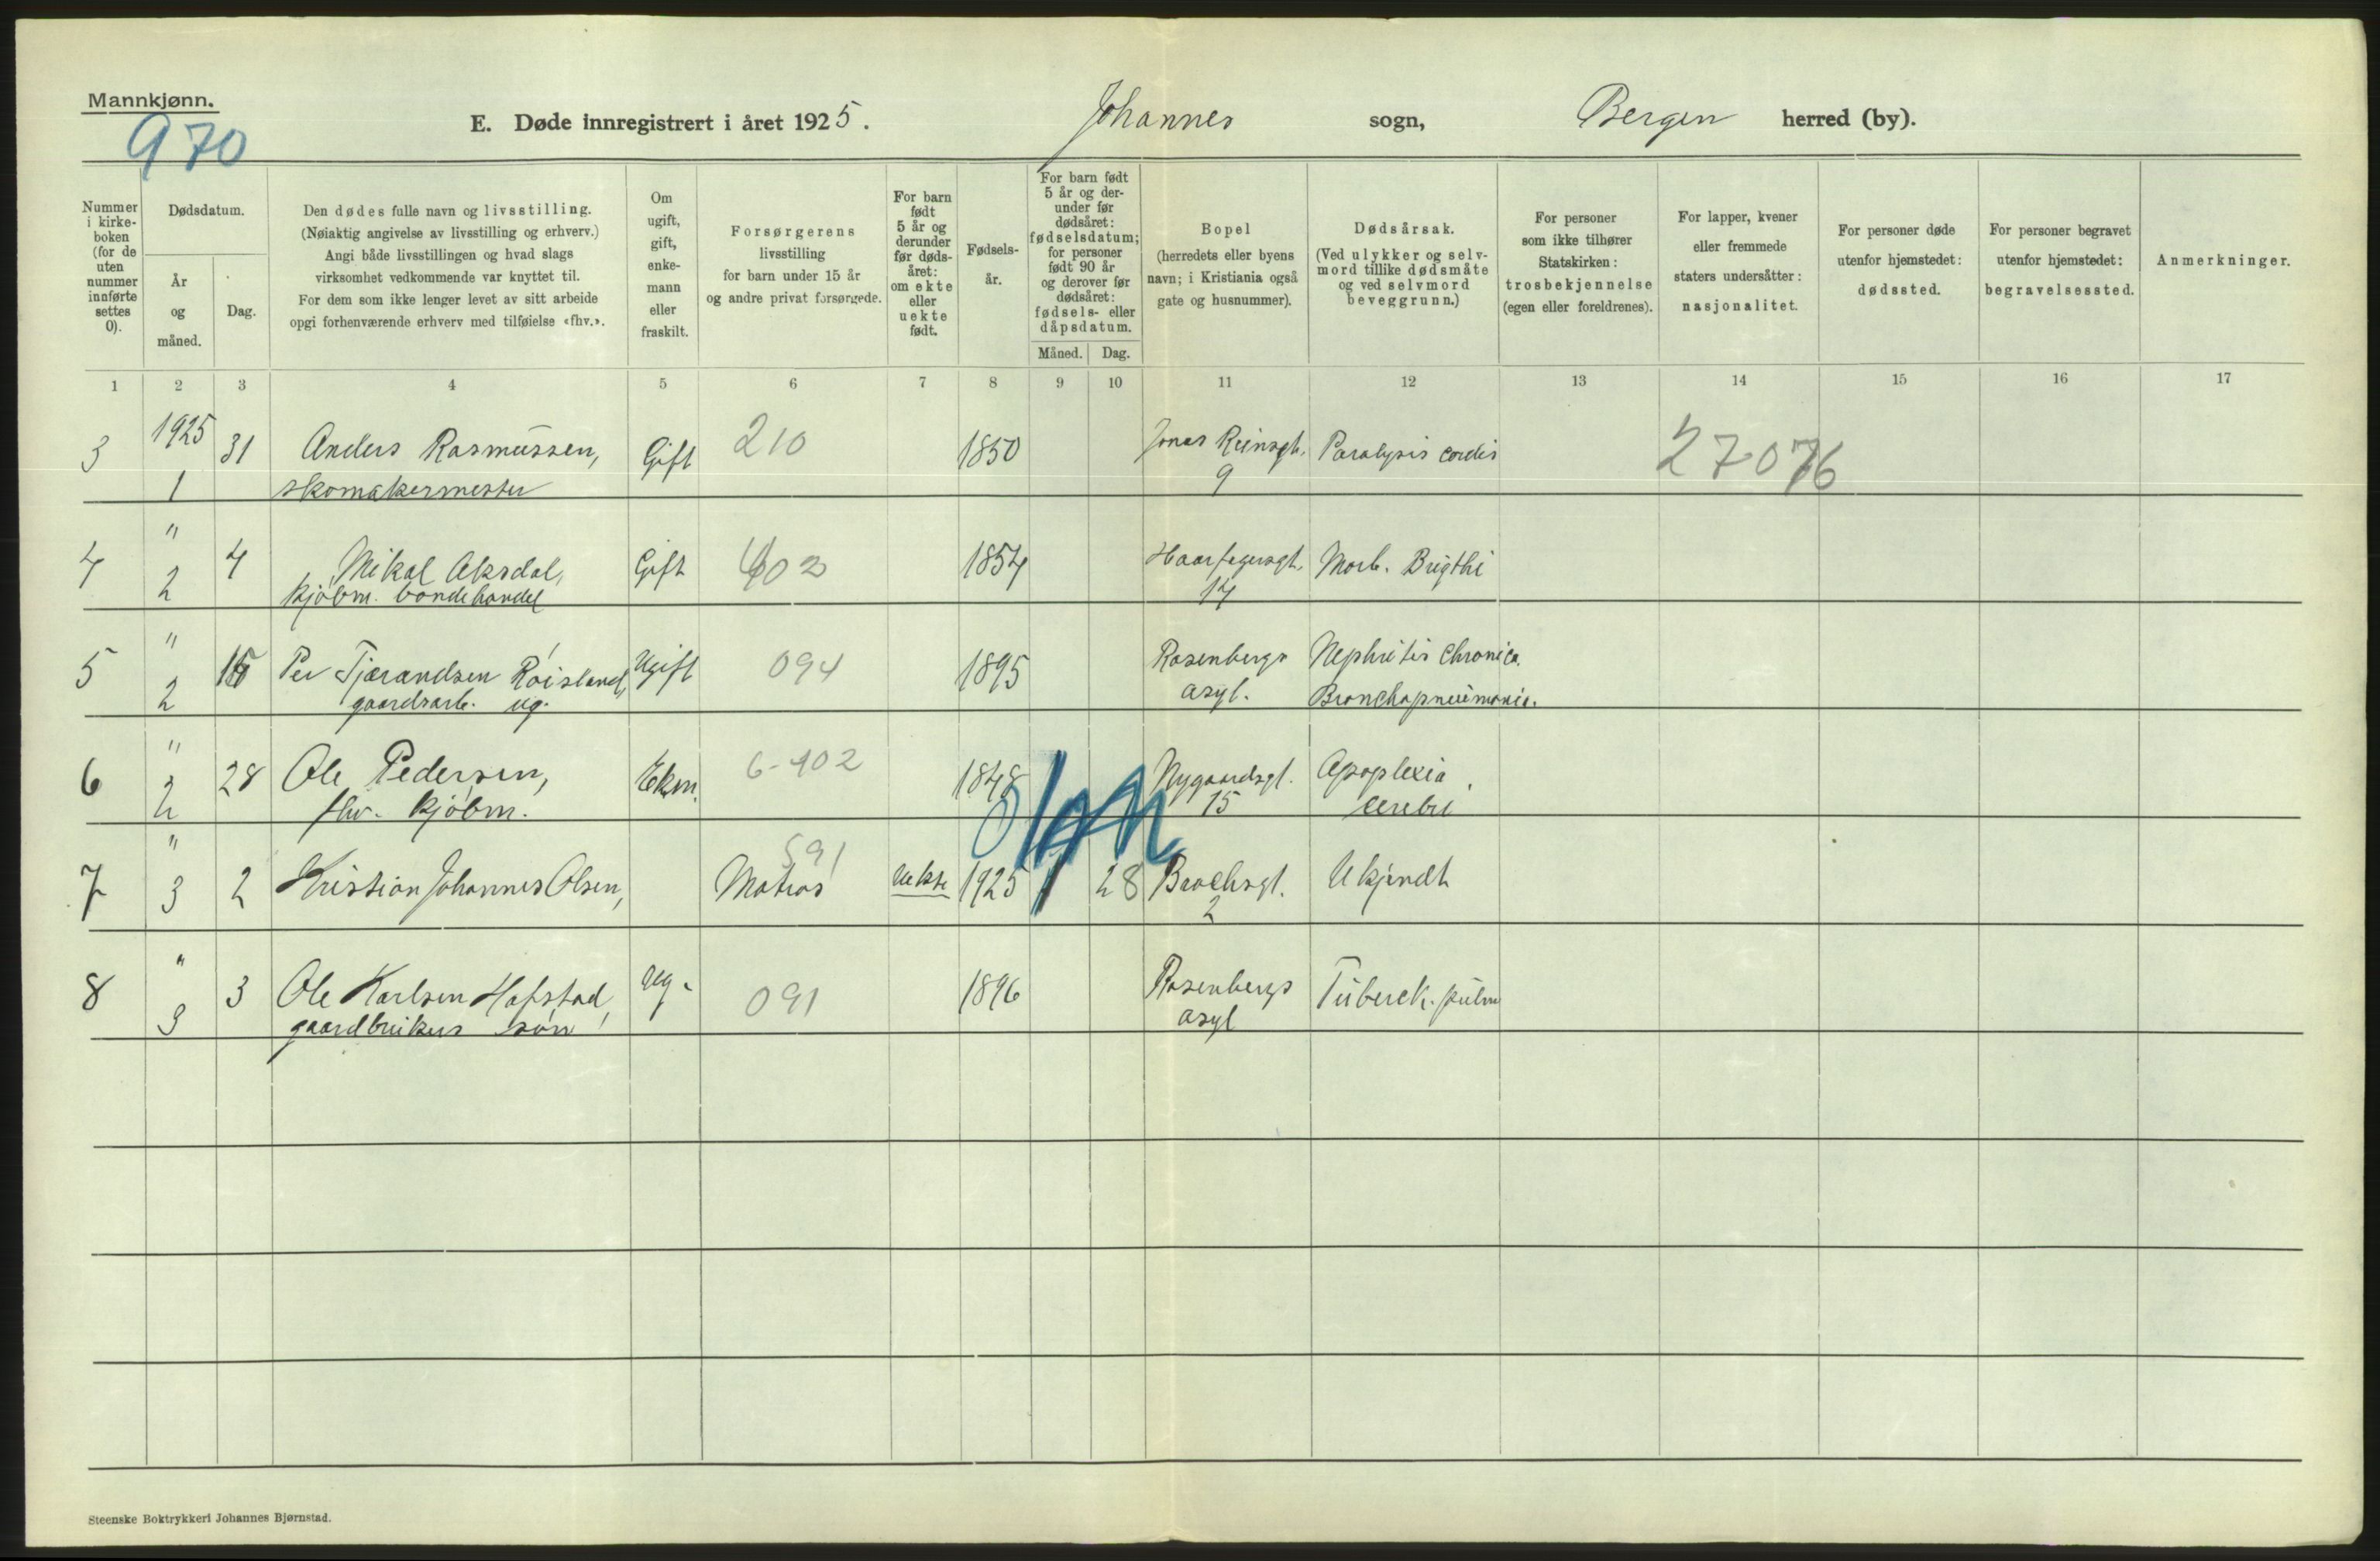 Mannkjønn.
970
E. Døde innregistrert i året 1925. Johannes sogn, Bergen herred (by).
Nummer i kirke-boken (for de uten nummer innførte settes 0).
Dødsdatum.
År og måned.
Dag.
Den dødes fulle navn og livsstilling.
(Nøiaktig angivelse av livsstilling og erhverv.)
Angi både livsstillingen og hvad slags
virksomhet vedkommende var knyttet til.
For dem som ikke lenger levet av sitt arbeide
opgi forhenværende erhverv med tilføielse «fhv.».
Om ugift, gift, enke-mann eller fraskilt.
Forsørgerens
livsstilling
for barn under 15 år
og andre privat forsørgede.
For barn født 5 år og derunder før døds-året: om ekte eller uekte født.
Fødsels-år.
For barn født 5 år og der-under før dødsåret: fødselsdatum; for personer født 90 år og derover før dødsåret: fødsels- eller dåpsdatum.
Måned. Dag.
Bopel
(herredets eller byens
navn; i Kristiania også
gate og husnummer).
Dødsårsak.
(Ved ulykker og selv-
mord tillike dødsmåte
og ved selvmord
beveggrunn.)
For personer
som ikke tilhører
Statskirken:
trosbekjennelse
(egen eller foreldrenes).
For lapper, kvener
eller fremmede
staters undersåtter:
nasjonalitet.
For personer døde
utenfor hjemstedet:
dødssted.
For personer begravet
utenfor hjemstedet:
begravelsessted.
Anmerkninger.
1 2 3 4 5 6 7 8 9 10 11 12 13 14 15 16 17
3 1925 31 Anders Rasmussen, Gift 210 1850 Jonas Reinsgt. Paralysis cordis 27076
1 skomakermester 9
4 " 4 Mikal Aksdal, Gift 402 1854 Haarfagersgt. Morb. Brigthi
2 kjøbm. bondehandel 14
5 " Per Tjærandsen Röisland, Ugift 094 1895 Rosenbergs Nephritis Chronica.
2 gaardsarb. ug. asyl. Bronchopneumonia.
6 " 28 Ole Pedersen, Ekm. 6-402 1848 Nygaardsgt. Apoplexia
2 fhv. kjöbm. 15 cerebri
7 " 2 Kristian Johannes Olsen, 591 Matros uekte 1925 1 28 Brochsgt. Ukjendt
3 2
8 " 3 Ole Karlsen Hafstad, ug. 091 1896 Rosenbergs Tuberck. pulm
3 gaardbrukers sön asyl
Steenske Boktrykkeri Johannes Bjørnstad.